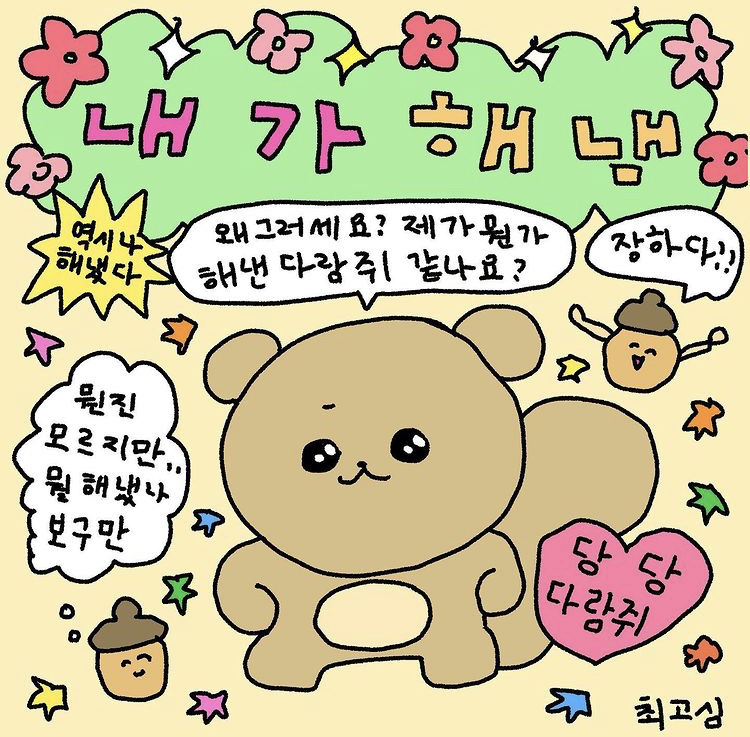 내가해냄
역시 나
해냈다
왜그러세요? 제가 뭔가
해낸 다람쥐 같나요?
장하다!!
뭔진
모르지만..
뭘 해냈나
보구만
당 당
다람쥐
최고심